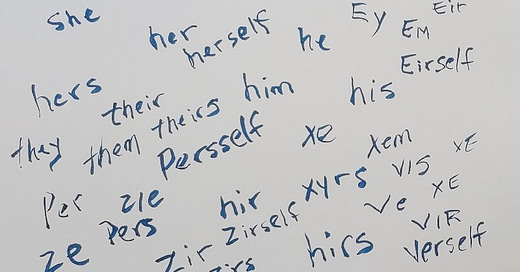 she her herself he Ey EM Eir
hers their him his Eirself
they them theirs Persself xe xem
Per zie hir xyrs vis xE
ze Pers zir zirself Ve xE
hirs VIR Verself